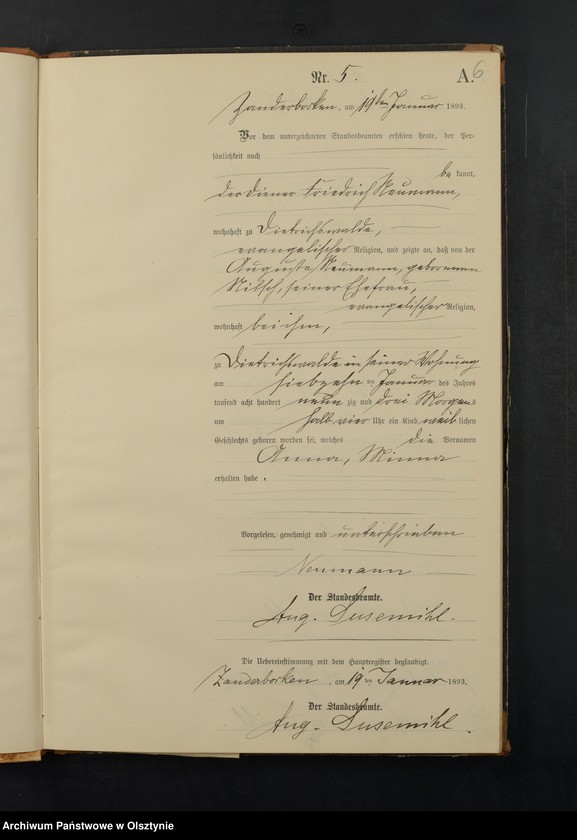 Nr. 5.
A. 6
Zanderborken, am 19ten Januar 1893.
Vor dem unterzeichneten Standesbeamten erschien heute, der Per-
sönlichkeit nach
bekannt,
der Diener Friedrich Neumann,
wohnhaft zu Dietrichswalde,
evangelischer Religion, und zeigte an, daß von der
Auguste Neumann, geborenen
Nitsch, seiner Ehefrau,
evangelischer Religion,
wohnhaft bei ihm,
zu Dietrichswalde in seiner Wohnung
am siebzehn ten Januar des Jahres
tausend acht hundert neun zig und drei Morgens
um halb vier Uhr ein Kind weiblichen
Geschlechts geboren worden sei, welches die Vornamen
Anna, Minna
erhalten habe.
Vorgelesen, genehmigt und unterschrieben
Neumann
Der Standesbeamte.
Aug. Susemihl.
Die Uebereinstimmung mit dem Hauptregister beglaubigt.
Zanderborken, am 19 ten Januar 1893.
Der Standesbeamte.
Aug. Susemihl.
Archiwum Państwowe w Olsztynie